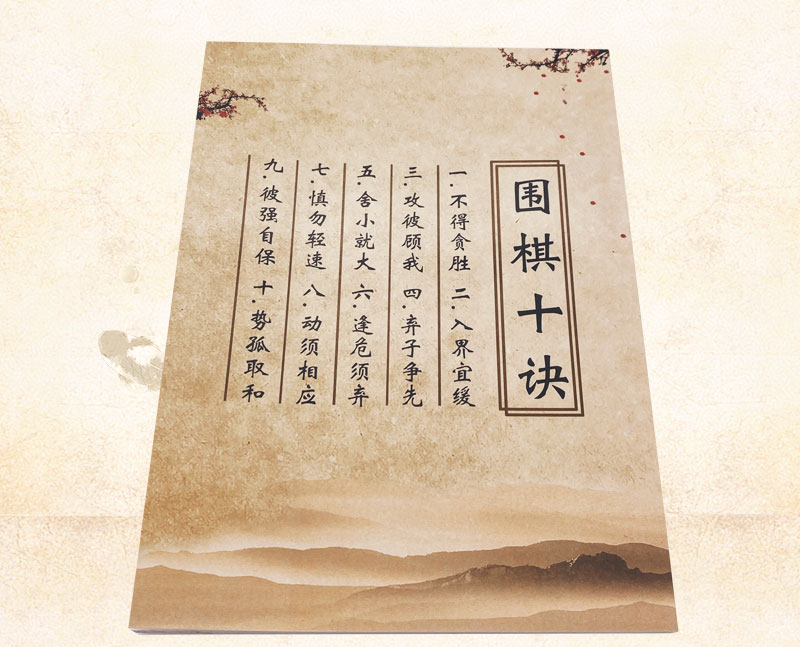 围棋十诀
一.不得贪胜 二.入界宜缓
三.攻彼顾我 四.弃子争先
五.舍小就大 六.逢危须弃
七.慎勿轻速 八.动须相应
九.彼强自保 十.势孤取和